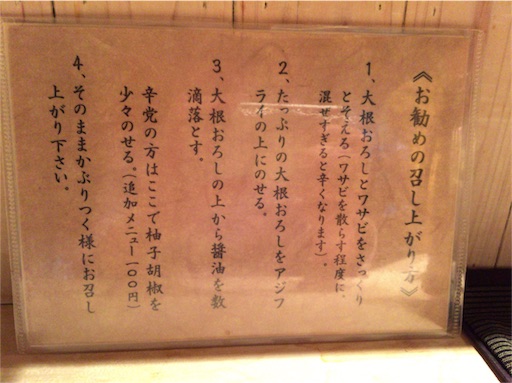 《お勧めの召し上がり方》
1、大根おろしとワサビをさっくり
とそえる(ワサビを散らす程度に、
混ぜすぎると辛くなります)。
2、たっぷりの大根おろしをアジフ
ライの上にのせる。
3、大根おろしの上から醤油を数
滴落とす。
辛党の方はここで柚子胡椒を
少々のせる。(追加メニュー一〇〇円)
4、そのままかぶりつく様にお召し
上がり下さい。